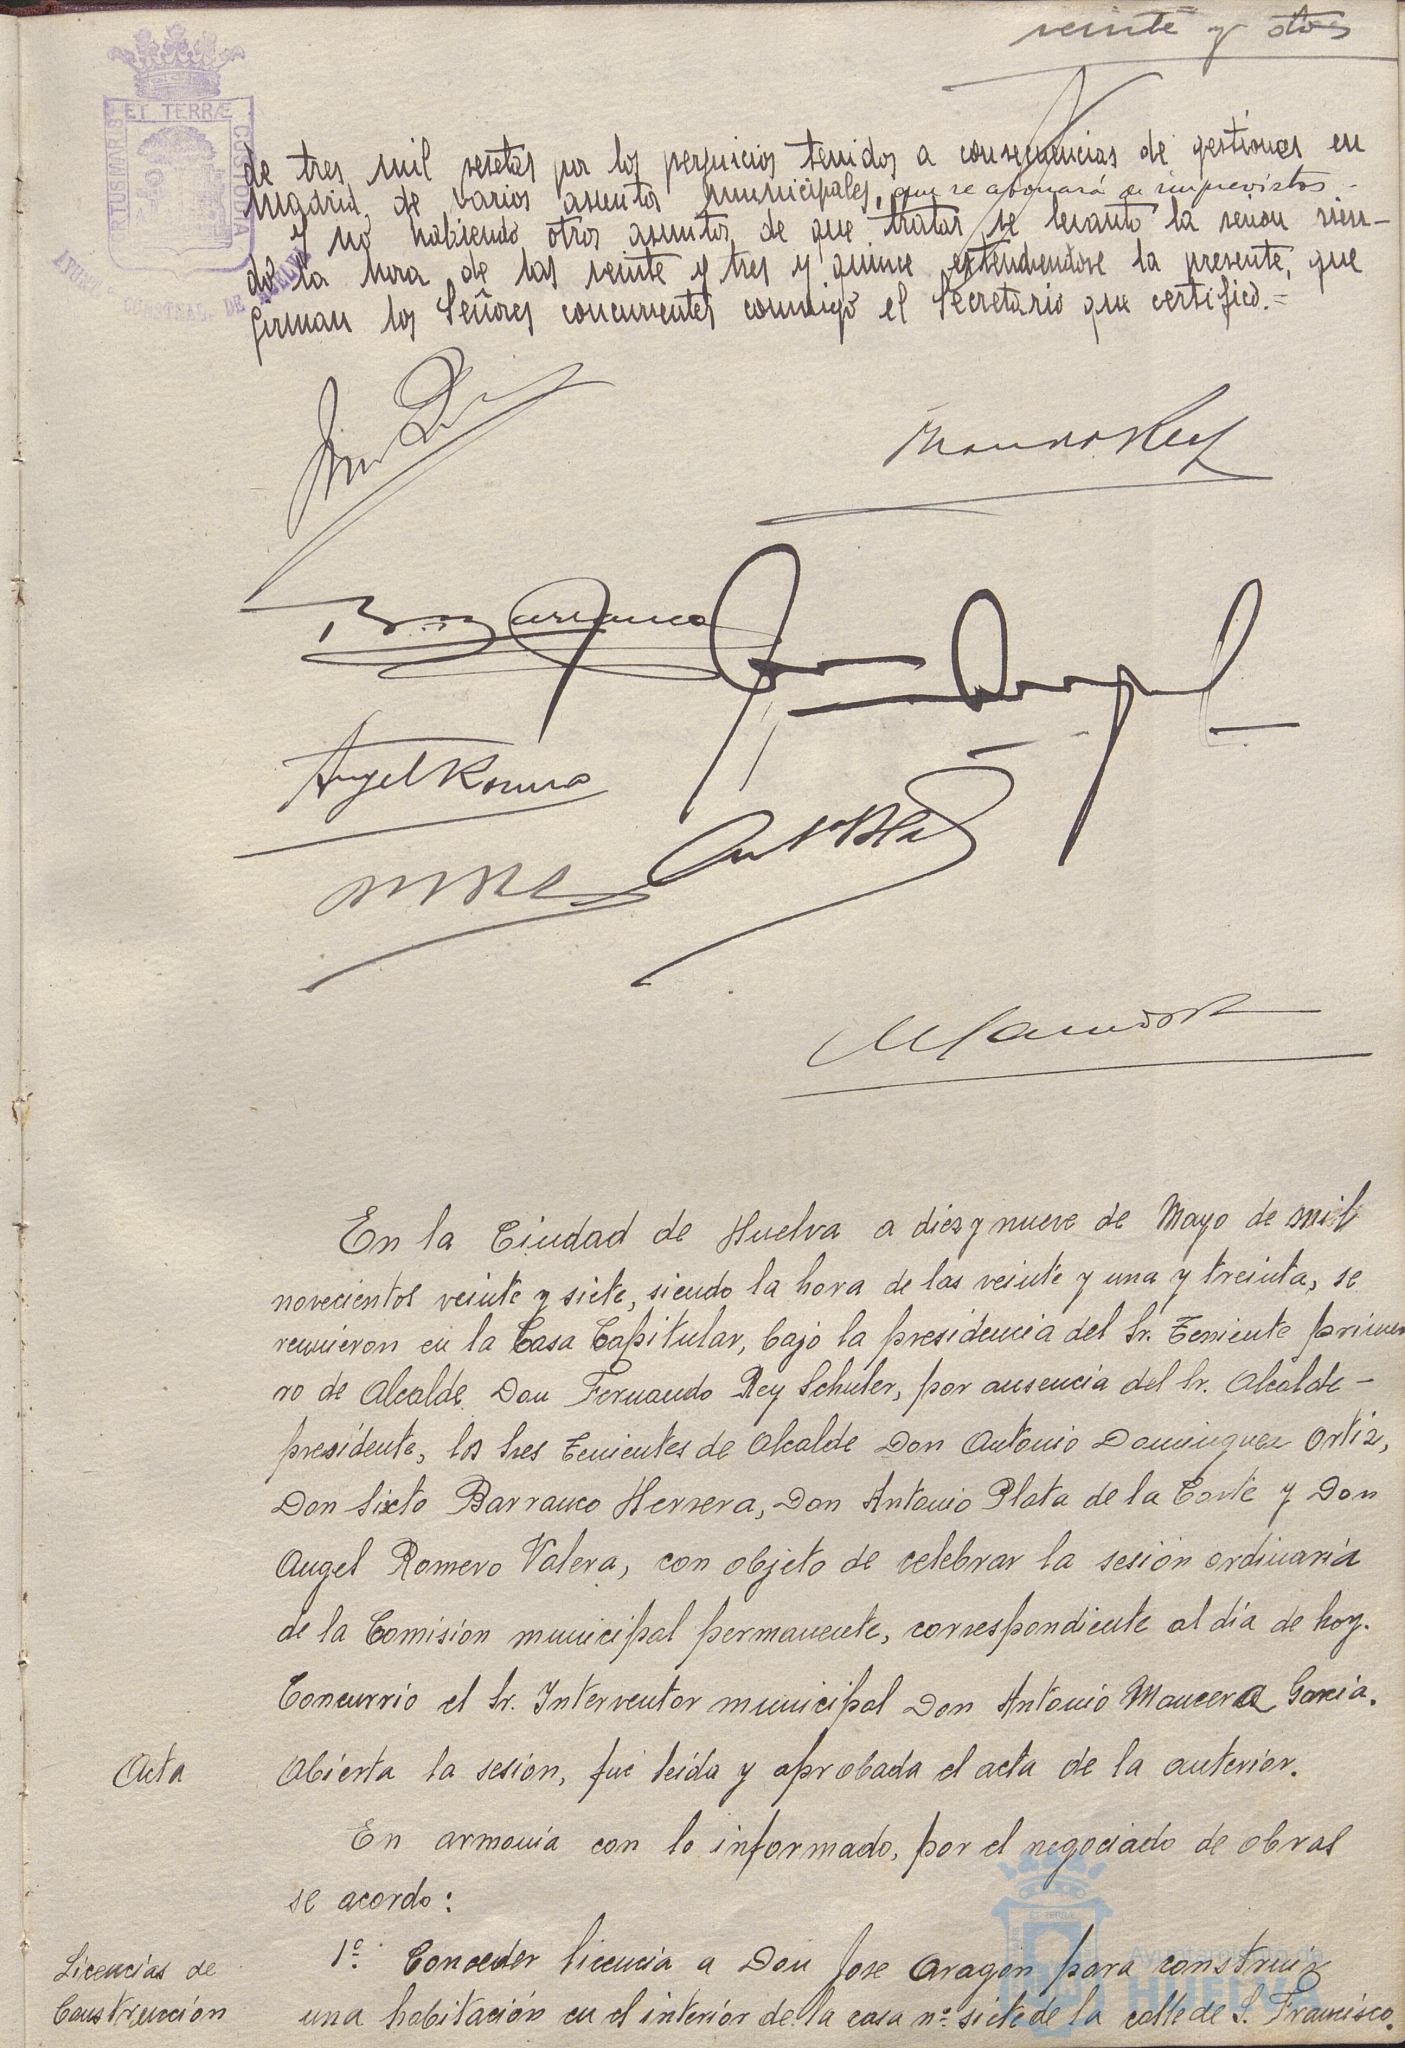 veinte y dos
ET TERRÆ
CUSTODIA
de tres mil pesetas por los perjuicios tenidos a consecuencias de gestiones en
Madrid, de varios asuntos municipales, que se abonará de imprevistos.-
Y no habiendo otros asuntos de que tratar se levantó la sesion sien-
do la hora de las veinte y tres y quince extendiendose la presente, que
firman los Señores concurrentes conmigo el Secretario que certifico.=
Barranco
Angel Romero
En la Ciudad de Huelva a diez y nueve de Mayo de mil
novecientos veinte y siete, siendo la hora de las veinte y una y treinta, se
reunieron en la Casa Capitular, bajo la presidencia del Sr. Teniente prime
ro de Alcalde Don Fernando Rey Schuler, por ausencia del Sr. Alcalde-
presidente, los tres Tenientes de Alcalde Don Antonio Dominguez Ortiz,
Don Sixto Barranco Herrera, Don Antonio Plata de la Corte y Don
Angel Romero Valera, con objeto de celebrar la sesión ordinaria
de la Comision municipal permanente, correspondiente al día de hoy.
Concurrió el Sr. Interventor municipal Don Antonio Mancera Garcia.
Acta Abierta la sesion, fue leida y aprobada el acta de la anterior.
En armonia con lo informado, por el negociado de obras
se acordo:
Licencias de 1º. Conceder licencia a Don Jose Aragón para construir
Construcción una habitación en el interior de la casa nº siete de la calle de S. Francisco.
Ayuntamiento de
HUELVA